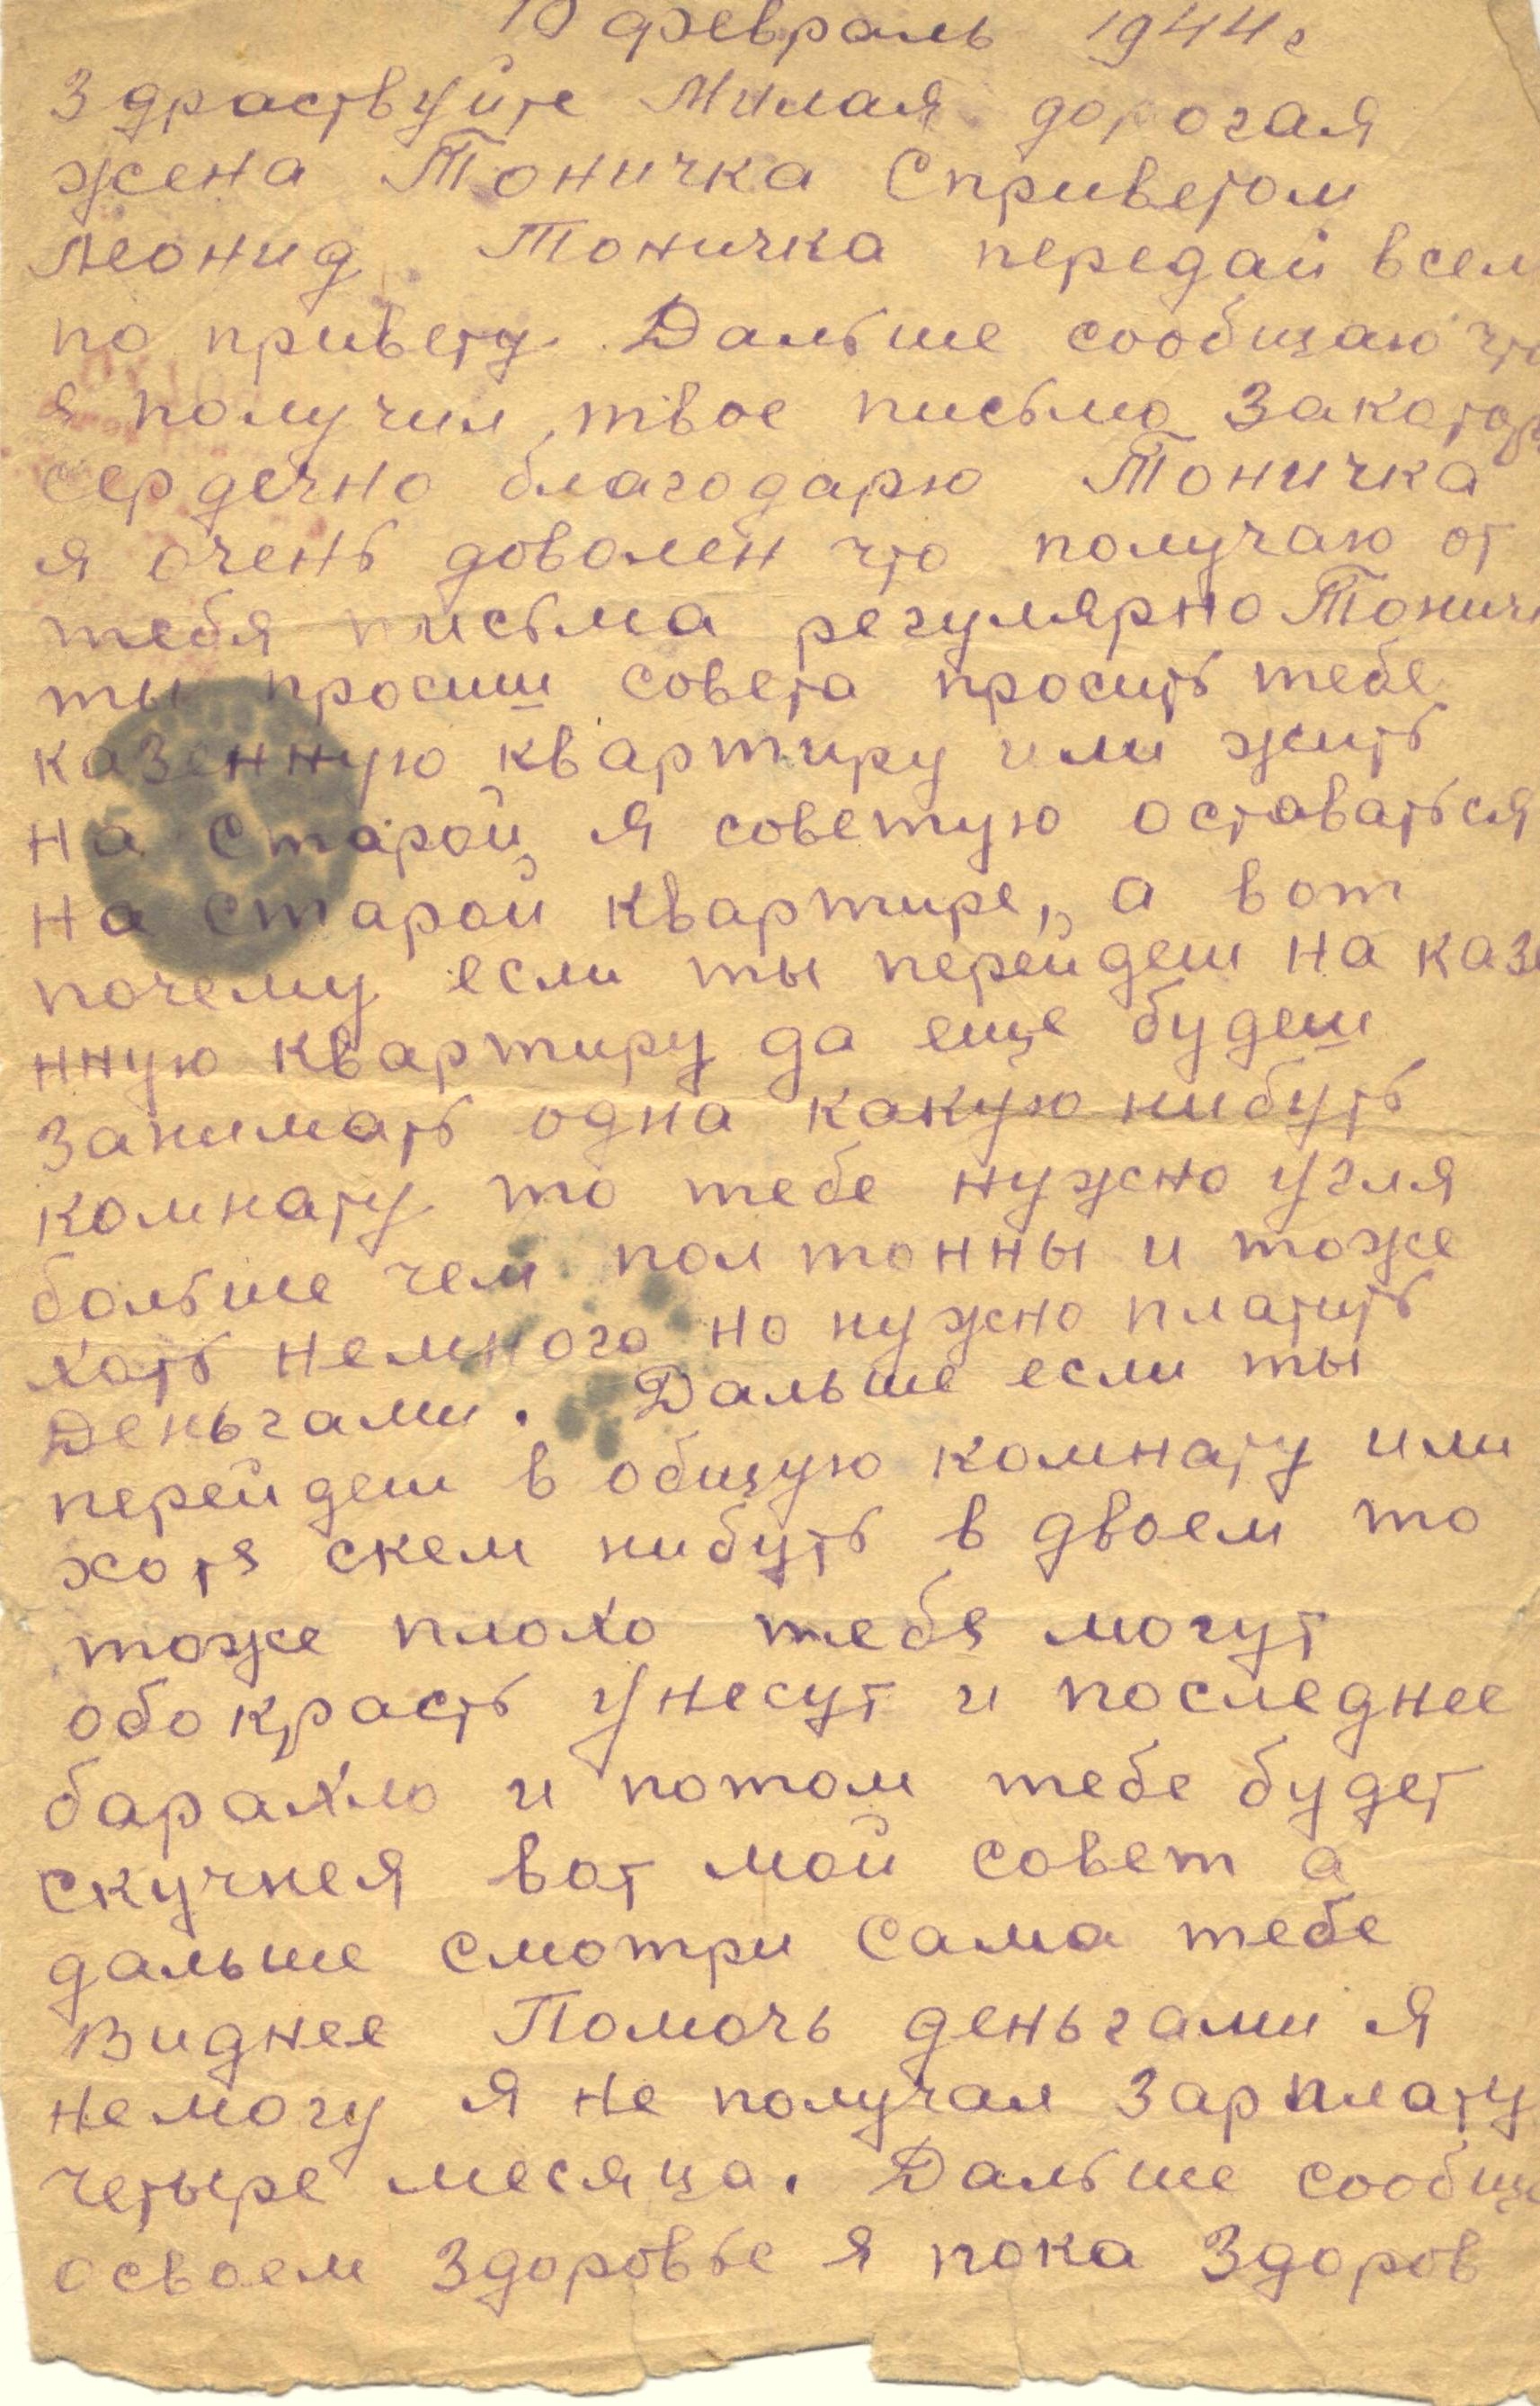 10 февраль 1944 г
Здраствуйте Милая дорогая
жена Тоничка Сприветом
Леонид Тоничка передай всем
по привету. Дальше сообщаю что
я получил твое письмо Закотор
сердечно благодарю Тоничка
я очень доволен что получаю от
тебя письма регулярно Тоничк
ты просиш совета просить тебе
казенную квартиру или жить
на старой, я советую оставаться
на старой квартире, а вот
почему если ты перейдеш на казе
нную квартиру да еще будеш
занимать одна какую нибуть
комнату то тебе нужно угля
больше чем пол тонны и тоже
хоть немного но нужно платить
Деньгами. Дальше если ты
перейдеш в общую комнату или
хотя скем нибуть в двоем то
тоже плохо тебя могут
обокрасть унесут и последнее
барахло и потом тебе будет
скучнея вот мой совет а
дальше смотри сама тебе
Виднее Помочь деньгами я
немогу я не получал Зарплату
четыре месяца. Дальше сообща
освоем здоровье я пока Здоров